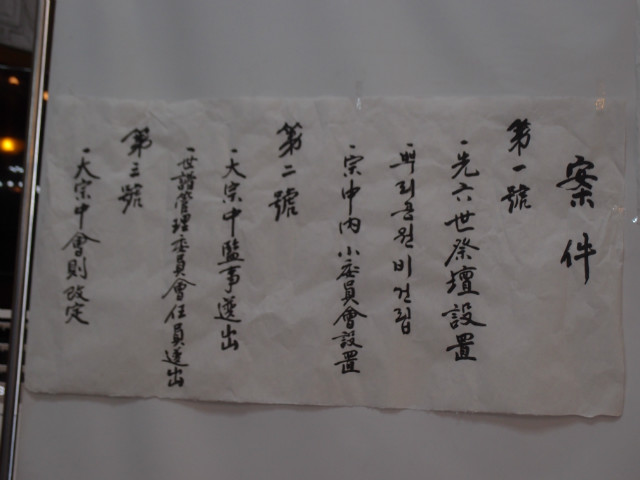 案件
第一號
·先六世祭壇設置
·뿌리공원비건립
·宗中內小委員會設置
第二號
·大宗中監事選出
·世譜管理委員會任員選出
第三號
·大宗中會則改定